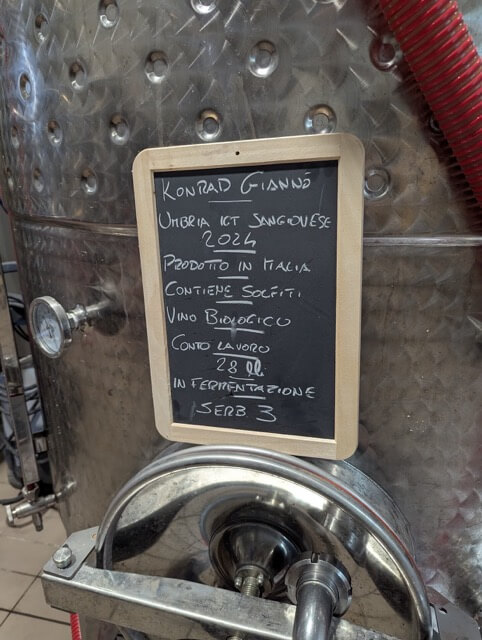 KONRAD GIANNÒ
UMBRIA IGT SANGIOVESE
2024
PRODOTTO IN ITALIA
CONTIENE SOLFITI
VINO BIOLOGICO
CONTO LAVORO
28
IN FERMENTAZIONE
SERB 3